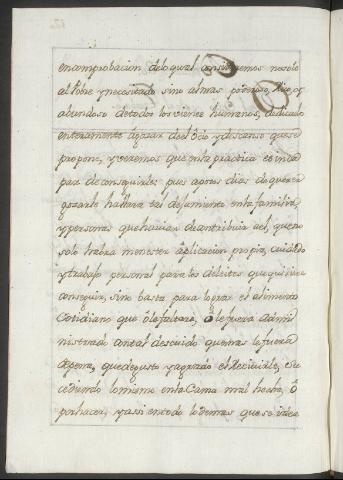 en comprobacion delo qual consideremos no solo
al Pobre y necesitado sino al mas poderoso, Rico, y
abundoso de todos los vienes humanos, dedicado
enteramente à gozar de el Ocio y descanso que se
propone, y veremos que en la practica es inca
paz de conseguirle; pues apocos dias de querer
gozarle hallara tal desimiento en la familia,
y personas que havian de contribuir a el, que no
solo habra menester aplicacion propia, cuidado
y trabajo personal para los deleites que quisiera
conseguir, sino basta para lograr el alimento
Cotidiano que ô le faltara, ô le fuera admi
nistrado con tal descuido que mas le fuera
de pena, que de gusto y agrado el Recivirle, su
cediendo lo mismo en la Cama mal hecha, ô
por hacer, y assi en todo lo demas que se